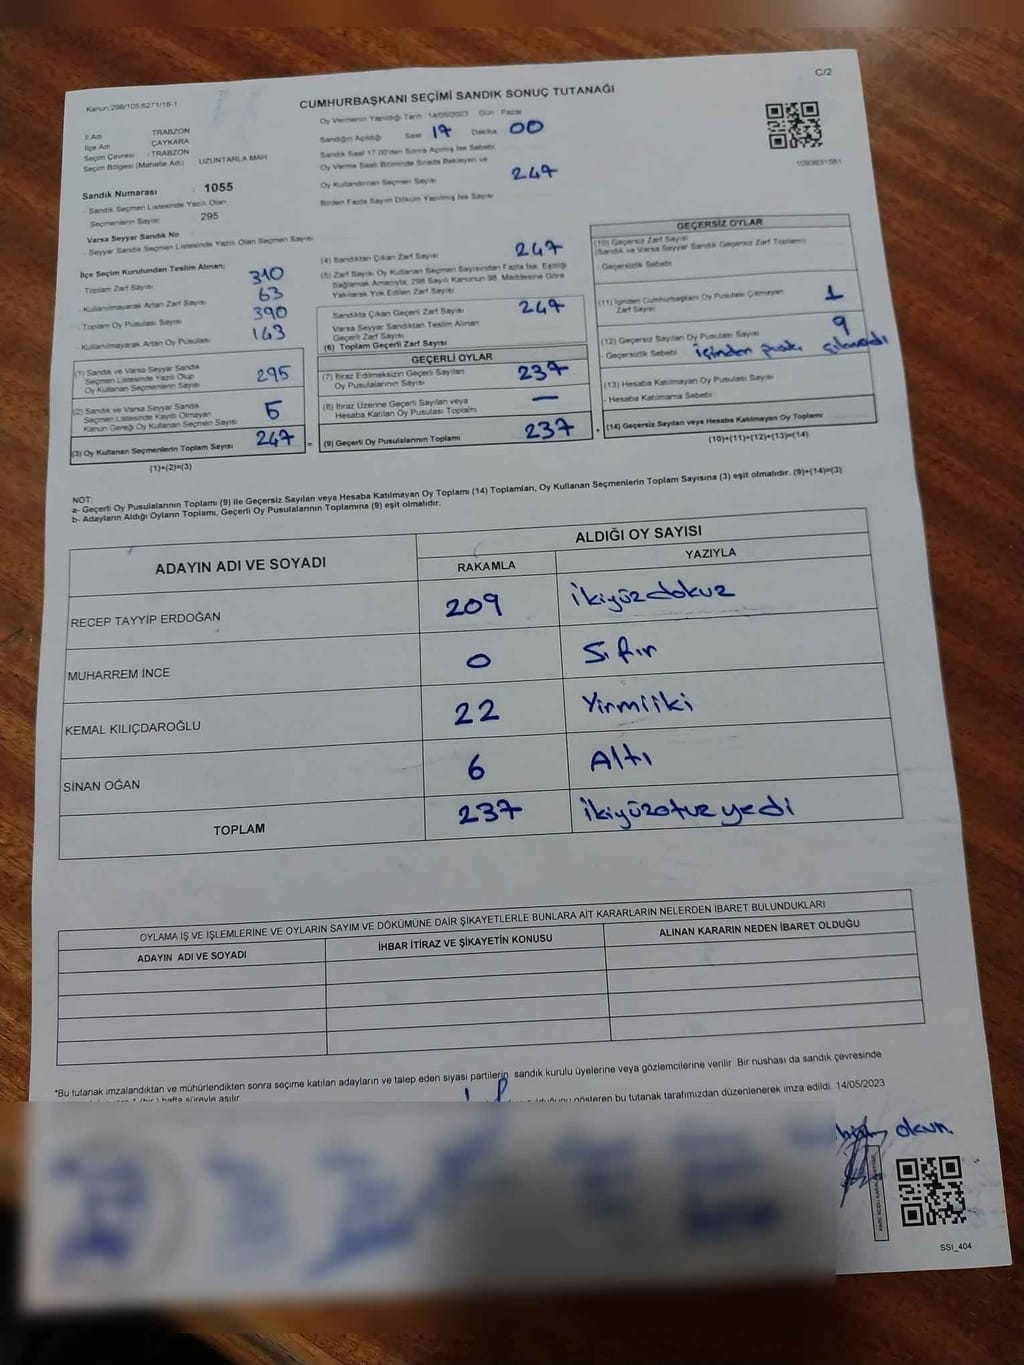 C/2
Kanun:298/105;6271/18-1
CUMHURBAŞKANI SEÇİMİ SANDIK SONUÇ TUTANAĞI
İl Adı TRABZON
İlçe Adı ÇAYKARA
Seçim Çevresi : TRABZON
Seçim Bölgesi (Mahalle Adı) UZUNTARLA MAH
Sandık Numarası : 1055
- Sandık Seçmen Listesinde Yazılı Olan
Seçmenlerin Sayısı 295
Varsa Seyyar Sandık No
- Seyyar Sandık Seçmen Listesinde Yazılı Olan Seçmen Sayısı
Oy Vermenin Yapıldığı Tarih 14/05/2023 Gün : Pazar
Sandığın Açıldığı Saat 17 Dakika 00
Sandık Saat 17.00'den Sonra Açılmış İse Sebebi
Oy Verme Saati Bitiminde Sırada Bekleyen ve
Oy Kullandırılan Seçmen Sayısı 247
Birden Fazla Sayım Döküm Yapılmış İse Sayısı
1093631561
İlçe Seçim Kurulundan Teslim Alınan;
- Toplam Zarf Sayısı 310
- Kullanılmayarak Artan Zarf Sayısı 63
- Toplam Oy Pusulası Sayısı 390
- Kullanılmayarak Artan Oy Pusulası 143
(1) Sandık ve Varsa Seyyar Sandık
Seçmen Listesinde Yazılı Olup
Oy Kullanan Seçmenlerin Sayısı 295
(2) Sandık ve Varsa Seyyar Sandık
Seçmen Listesinde Kayıtlı Olmayan
Kanun Gereği Oy Kullanan Seçmen Sayısı 5
(3) Oy Kullanan Seçmenlerin Toplam Sayısı 247 =
(1)+(2)=(3)
(4) Sandıktan Çıkan Zarf Sayısı 247
(5) Zarf Sayısı Oy Kullanan Seçmen Sayısından Fazla İse, Eşitliği
Sağlamak Amacıyla, 298 Sayılı Kanunun 98. Maddesine Göre
Yakılarak Yok Edilen Zarf Sayısı
Sandıkta Çıkan Geçerli Zarf Sayısı 247
Varsa Seyyar Sandıktan Teslim Alınan
Geçerli Zarf Sayısı
(6) Toplam Geçerli Zarf Sayısı
GEÇERLİ OYLAR
(7) İtiraz Edilmeksizin Geçerli Sayılan
Oy Pusulalarının Sayısı 237
(8) İtiraz Üzerine Geçerli Sayılan veya
Hesaba Katılan Oy Pusulası Toplamı —
(9) Geçerli Oy Pusulalarının Toplamı 237 +
GEÇERSİZ OYLAR
(10) Geçersiz Zarf Sayısı
(Sandık ve Varsa Seyyar Sandık Geçersiz Zarf Toplamı)
- Geçersizlik Sebebi
(11) İçinden Cumhurbaşkanı Oy Pusulası Çıkmayan
Zarf Sayısı 1
(12) Geçersiz Sayılan Oy Pusulası Sayısı 9
- Geçersizlik Sebebi içinden çıkmadı
(13) Hesaba Katılmayan Oy Pusulası Sayısı
- Hesaba Katılmama Sebebi
(14) Geçersiz Sayılan veya Hesaba Katılmayan Oy Toplamı
(10)+(11)+(12)+(13)=(14)
NOT:
a- Geçerli Oy Pusulalarının Toplamı (9) ile Geçersiz Sayılan veya Hesaba Katılmayan Oy Toplamı (14) Toplamları, Oy Kullanan Seçmenlerin Toplam Sayısına (3) eşit olmalıdır. (9)+(14)=(3)
b- Adayların Aldığı Oyların Toplamı, Geçerli Oy Pusulalarının Toplamına (9) eşit olmalıdır.
ADAYIN ADI VE SOYADI
ALDIĞI OY SAYISI
RAKAMLA YAZIYLA
RECEP TAYYİP ERDOĞAN 209 ikiyüzdokuz
MUHARREM İNCE 0 Sıfır
KEMAL KILIÇDAROĞLU 22 Yirmiiki
SİNAN OĞAN 6 Altı
TOPLAM 237 ikiyüzotuzyedi
OYLAMA İŞ VE İŞLEMLERİNE VE OYLARIN SAYIM VE DÖKÜMÜNE DAİR ŞİKAYETLERLE BUNLARA AİT KARARLARIN NELERDEN İBARET BULUNDUKLARI
ADAYIN ADI VE SOYADI İHBAR İTİRAZ VE ŞİKAYETİN KONUSU ALINAN KARARIN NEDEN İBARET OLDUĞU
*Bu tutanak imzalandıktan ve mühürlendikten sonra seçime katılan adayların ve talep eden siyasi partilerin sandık kurulu üyelerine veya gözlemcilerine verilir. Bir nüshası da sandık çevresinde
1 (bir) hafta süreyle asılır.
gösteren bu tutanak tarafımızdan düzenlenerek imza edildi. 14/05/2023
okun
SSI_404